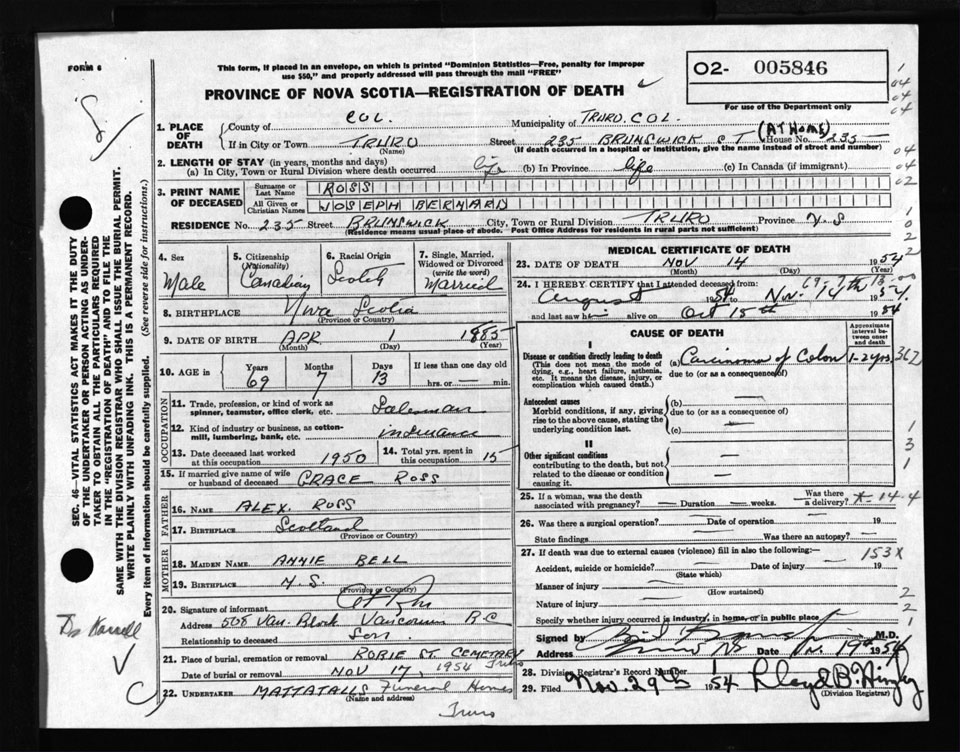 FORM 6
This form, if placed in an envelope, on which is printed "Dominion Statistics—Free, penalty for improper
use $50," and properly addressed will pass through the mail "FREE"
PROVINCE OF NOVA SCOTIA—REGISTRATION OF DEATH
O2- 005846
For use of the Department only
1. PLACE OF DEATH
County of COL. Municipality of TRURO. COL.
If in City or Town TRURO Street 235 BRUNSWICK ST (AT HOME) House No. 235
(Name) (If death occurred in a hospital or institution, give the name instead of street and number)
2. LENGTH OF STAY (in years, months and days)
(a) In City, Town or Rural Division where death occurred life (b) In Province life (c) In Canada (if immigrant)
3. PRINT NAME OF DECEASED
Surname or Last Name ROSS
All Given or Christian Names JOSEPH BERNARD
RESIDENCE No. 235 Street BRUNSWICK City, Town or Rural Division TRURO Province N.S
(Residence means usual place of abode. Post Office Address for residents in rural parts not sufficient)
4. Sex Male
5. Citizenship (Nationality) Canadian
6. Racial Origin Scotch
7. Single, Married, Widowed or Divorced (write the word) Married
8. BIRTHPLACE Nova Scotia
(Province or Country)
9. DATE OF BIRTH APR. 1 1885
(Month) (Day) (Year)
10. AGE in Years 69 Months 7 Days 13 If less than one day old
hrs. or — min.
OCCUPATION
11. Trade, profession, or kind of work as
spinner, teamster, office clerk, etc. Salesman
12. Kind of industry or business, as cotten-
mill, lumbering, bank, etc. insurance
13. Date deceased last worked
at this occupation 1950
14. Total yrs. spent in
this occupation 15
15. If married give name of wife
or husband of deceased GRACE ROSS
FATHER
16. NAME ALEX. ROSS
17. BIRTHPLACE Scotland
(Province or Country)
MOTHER
18. MAIDEN NAME ANNIE BELL
19. BIRTHPLACE N.S.
(Province or Country)
20. Signature of informant
Address 508 Van. Block Vancouver B.C
Relationship to deceased Son
21. Place of burial, cremation or removal ROBIE ST. CEMETARY
Date of burial or removal NOV 17, 1954 Truro
22. UNDERTAKER MATTATALLS Funeral Homes
(Name and address)
Truro
MEDICAL CERTIFICATE OF DEATH
23. DATE OF DEATH NOV 14 1954
(Month) (Day) (Year)
24. I HEREBY CERTIFY that I attended deceased from:
August 1954 to Nov. 14th 1954
and last saw him alive on Oct 15th 1954
CAUSE OF DEATH
Approximate interval between onset and death
I
Disease or condition directly leading to death
(This does not mean the mode of dying, e.g., heart failure, asthenia, etc. It means the disease, injury, or complication which caused death.)
(a) Carcinoma of Colon 1-2 yrs.
due to (or as a consequence of)
Antecedent causes
Morbid conditions, if any, giving rise to the above cause, stating the underlying condition last.
(b) —
due to (or as a consequence of)
(c) —
II
Other significant conditions
contributing to the death, but not related to the disease or condition causing it.
25. If a woman, was the death
associated with pregnancy? — Duration — weeks. Was there a delivery?
26. Was there a surgical operation? — Date of operation — 19
State findings — Was there an autopsy? —
27. If death was due to external causes (violence) fill in also the following:— 153X
Accident, suicide or homicide? — Date of injury — 19
(State which)
Manner of injury —
(How sustained)
Nature of injury —
Specify whether injury occurred in industry, in home, or in public place
Signed by M.D.
Address Truro NS Date Nov. 19 1954
28. Division Registrar's Record Number
29. Filed Nov. 29th 1954
(Division Registrar)
SEC. 46—VITAL STATISTICS ACT MAKES IT THE DUTY
OF THE UNDERTAKER OR PERSON ACTING AS UNDER-
TAKER TO OBTAIN ALL THE PARTICULARS REQUIRED
IN THE "REGISTRATION OF DEATH" AND TO FILE THE
SAME WITH THE DIVISION REGISTRAR WHO SHALL ISSUE THE BURIAL PERMIT.
WRITE PLAINLY WITH UNFADING INK. THIS IS A PERMANENT RECORD.
Every item of information should be carefully supplied. (See reverse side for instructions.)